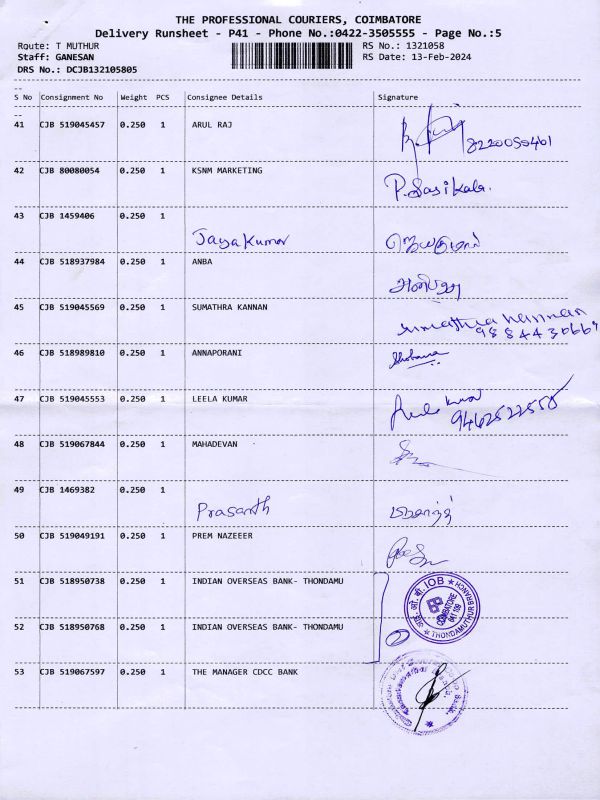 THE PROFESSIONAL COURIERS, COIMBATORE
Delivery Runsheet - P41 - Phone No.:0422-3505555 - Page No.:5
Route: T MUTHUR RS No.: 1321058
Staff: GANESAN RS Date: 13-Feb-2024
DRS No.: DCJB132105805
--
S No Consignment No Weight PCS Consignee Details Signature
--
41 CJB 519045457 0.250 1 ARUL RAJ
42 CJB 80080054 0.250 1 KSNM MARKETING
P. Sasikala.
43 CJB 1459406 0.250 1
Jayakumar ஜெயகுமார்
44 CJB 518937984 0.250 1 ANBA
45 CJB 519045569 0.250 1 SUMATHRA KANNAN
Sumathra Kannan
46 CJB 518989810 0.250 1 ANNAPORANI
Shobana
47 CJB 519045553 0.250 1 LEELA KUMAR
9462522558
48 CJB 519067844 0.250 1 MAHADEVAN
49 CJB 1469382 0.250 1
Prasanth பிரசாந்த்
50 CJB 519049191 0.250 1 PREM NAZEEER
51 CJB 518950738 0.250 1 INDIAN OVERSEAS BANK- THONDAMU
IOB
COIMBATORE
641 109
THONDAMUTHUR BRANCH
52 CJB 518950768 0.250 1 INDIAN OVERSEAS BANK- THONDAMU
53 CJB 519067597 0.250 1 THE MANAGER CDCC BANK